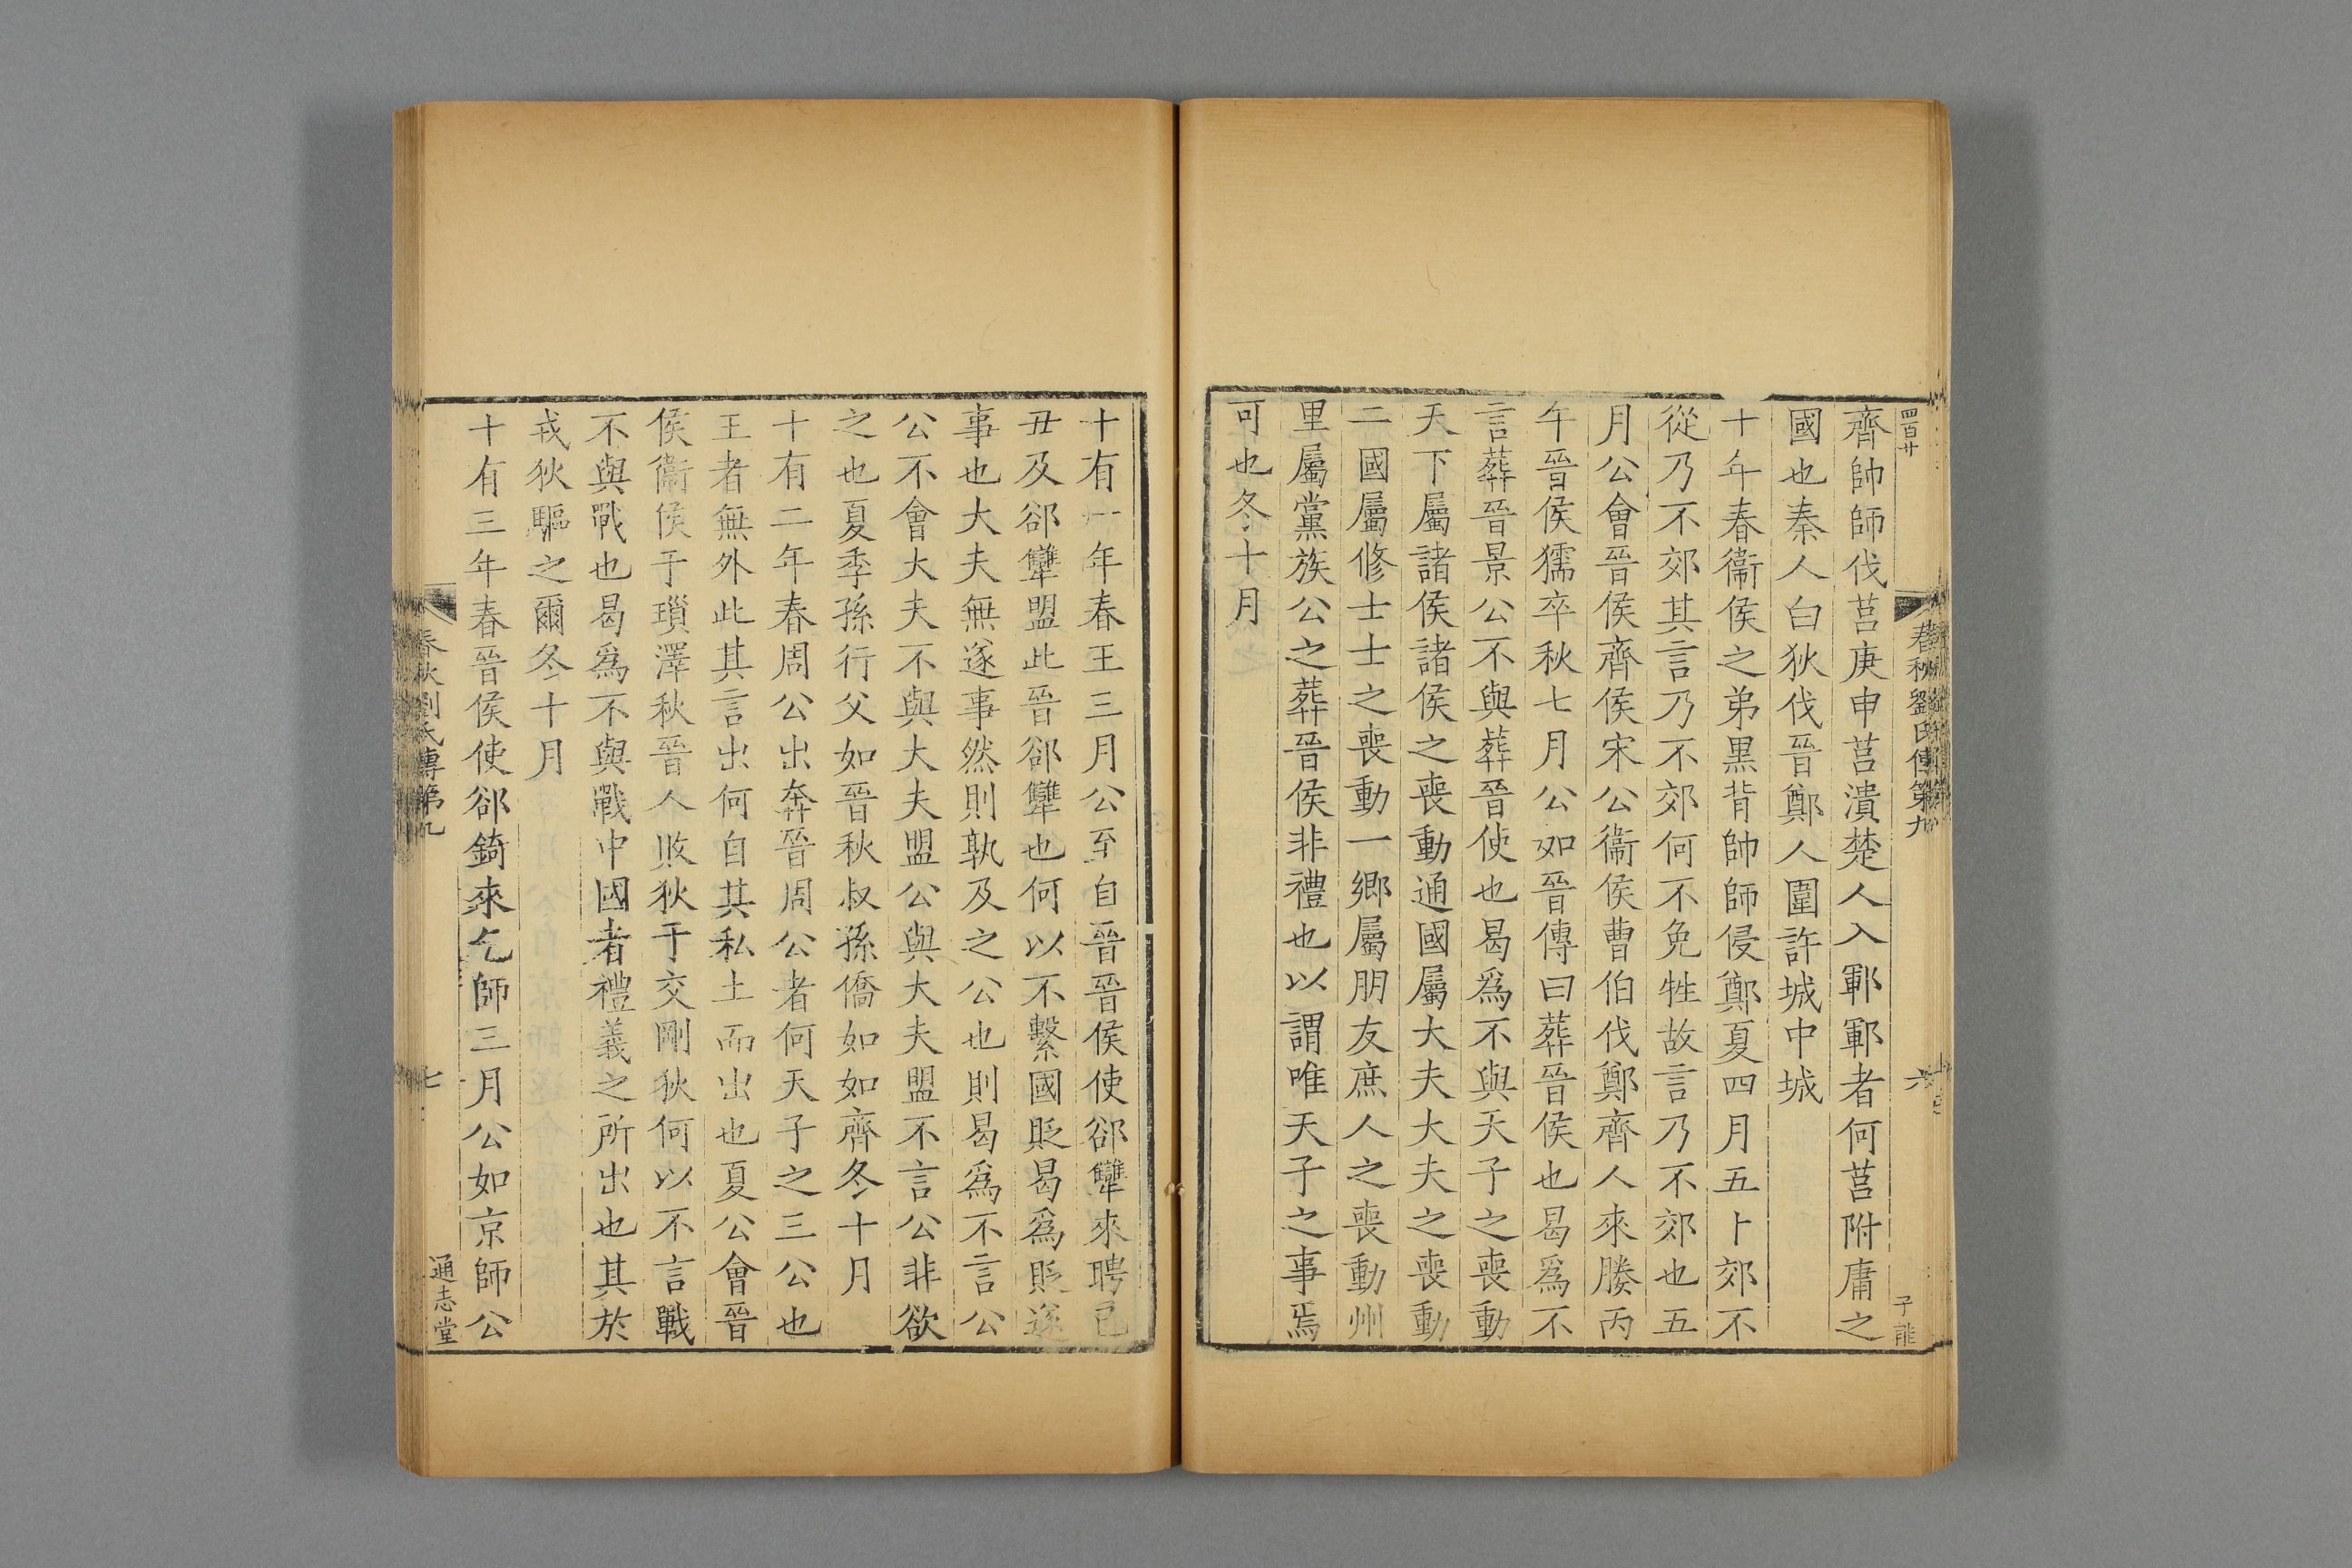 四百廿
春秋劉氏傳第九
六
齊師師伐莒庚申莒潰楚人入鄆鄆者何莒附庸之
國也秦人白狄伐晉鄭人圍許城中城
十年春衞侯之弟黑背帥師侵鄭夏四月五卜郊不
從乃不郊其言乃不郊何不免牲故言乃不郊也五
月公會晉侯齊侯宋公衞侯曹伯伐鄭齊人來媵丙
午晉侯獳卒秋七月公如晉傳曰葬晉侯也曷爲不
言葬晉景公不與葬晉使也曷爲不與天子之喪動
天下屬諸侯諸侯之喪動通國屬大夫大夫之喪動
一國屬修士士之喪動一鄉屬朋友庶人之喪動州
里屬黨族公之葬晉侯非禮也以謂唯天子之事焉
可也冬十月
十有一年春王三月公至自晉晉侯使郤犨來聘己
丑及郤犨盟此晉郤犨也何以不繫國貶曷爲貶遂
事也大夫無遂事然則孰及之公也則曷爲不言公
公不會大夫不與大夫盟公與大夫盟不言公非欲
之也夏季孫行父如晉秋叔孫僑如如齊冬十月
十有二年春周公出奔晉周公者何天子之三公也
王者無外此其言出何自其私土而出也夏公會晉
侯衞侯于瑣澤秋晉人敗狄于交剛狄何以不言戰
不與戰也曷爲不與戰中國者禮義之所出也其於
戎狄驅之爾冬十月
十有三年春晉侯使郤錡來乞師三月公如京師公
春秋劉氏傳第九
七
通志堂